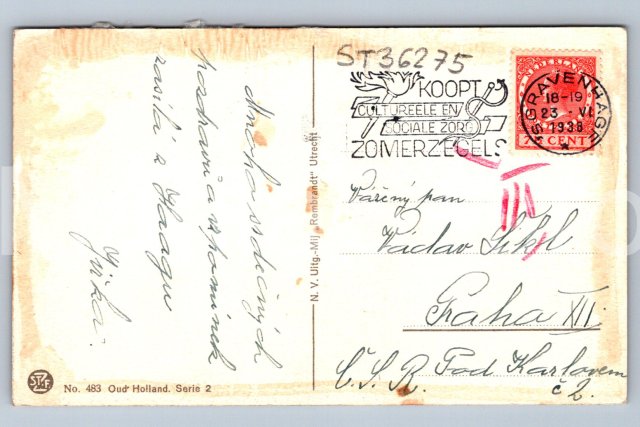 ST36275
KOOPT
CULTUREELE EN
SOCIALE ZORG
ZOMERZEGELS
NEDERLAND
7½ CENT
'SGRAVENHAGE
18-19
23 VI
1938
Mnoho srdečných
pozdravů a vzpomínek
zasílá z Haagu
Jiřka.
N. V. Uitg.-Mij „Rembrandt" Utrecht
Vážený pan
Václav
Praha XII.
Pod Karlovem
č 2.
Č. S. R.
No. 483 Oud Holland. Serie 2